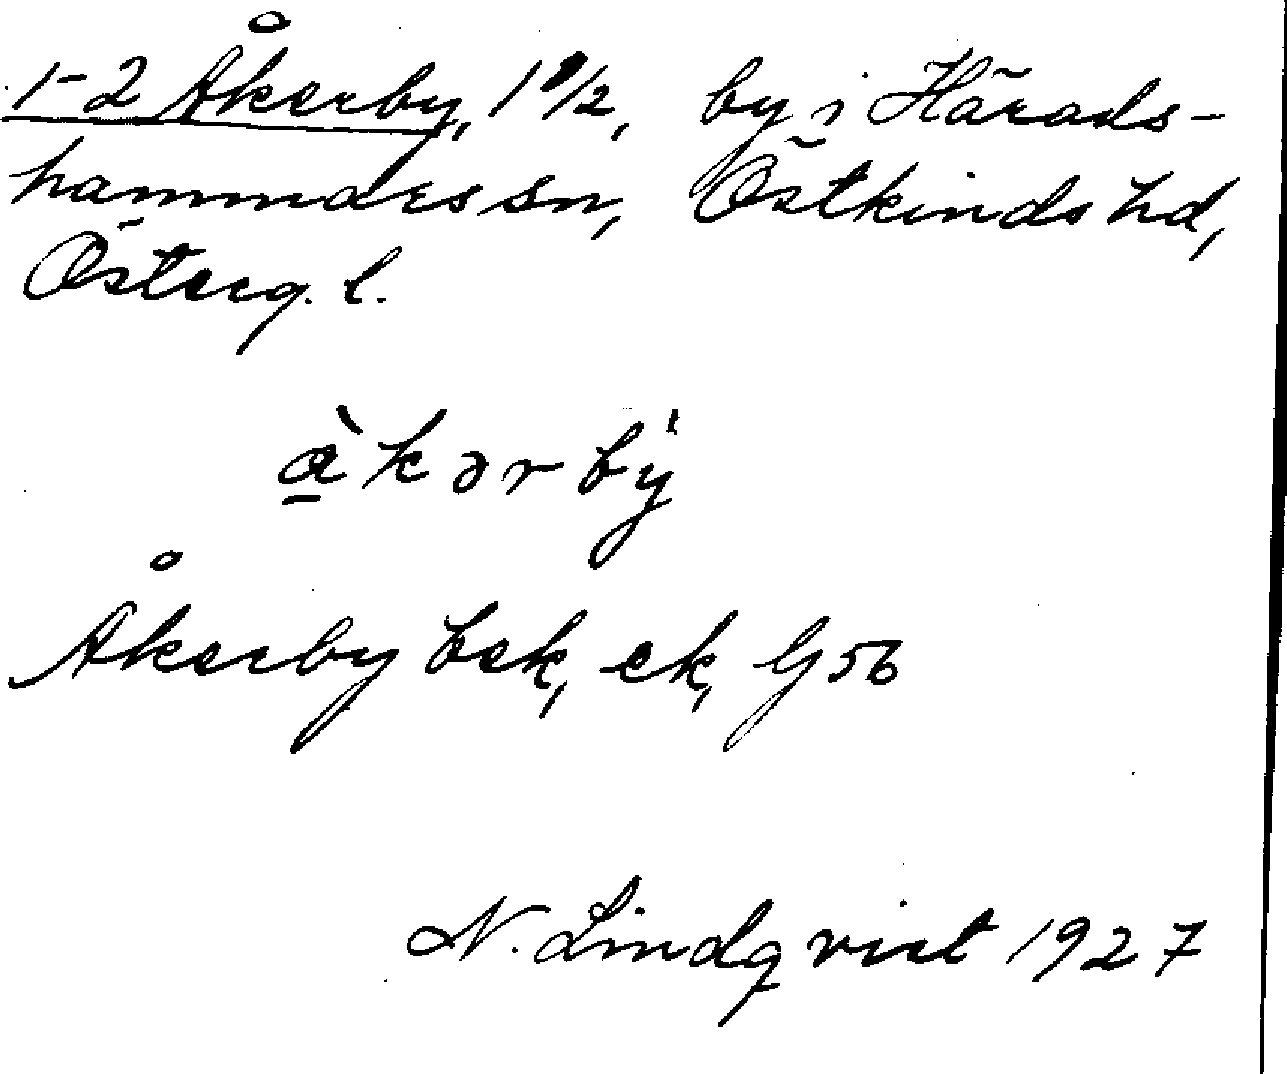 1-2 Åkerby, 1 1/2, by i Härads-
hammars sn, Östkinds hd,
Österg. l.
a̠̍̀kərbẏ
Åkerby bek, ek, G 56
N. Lindqvist 1927